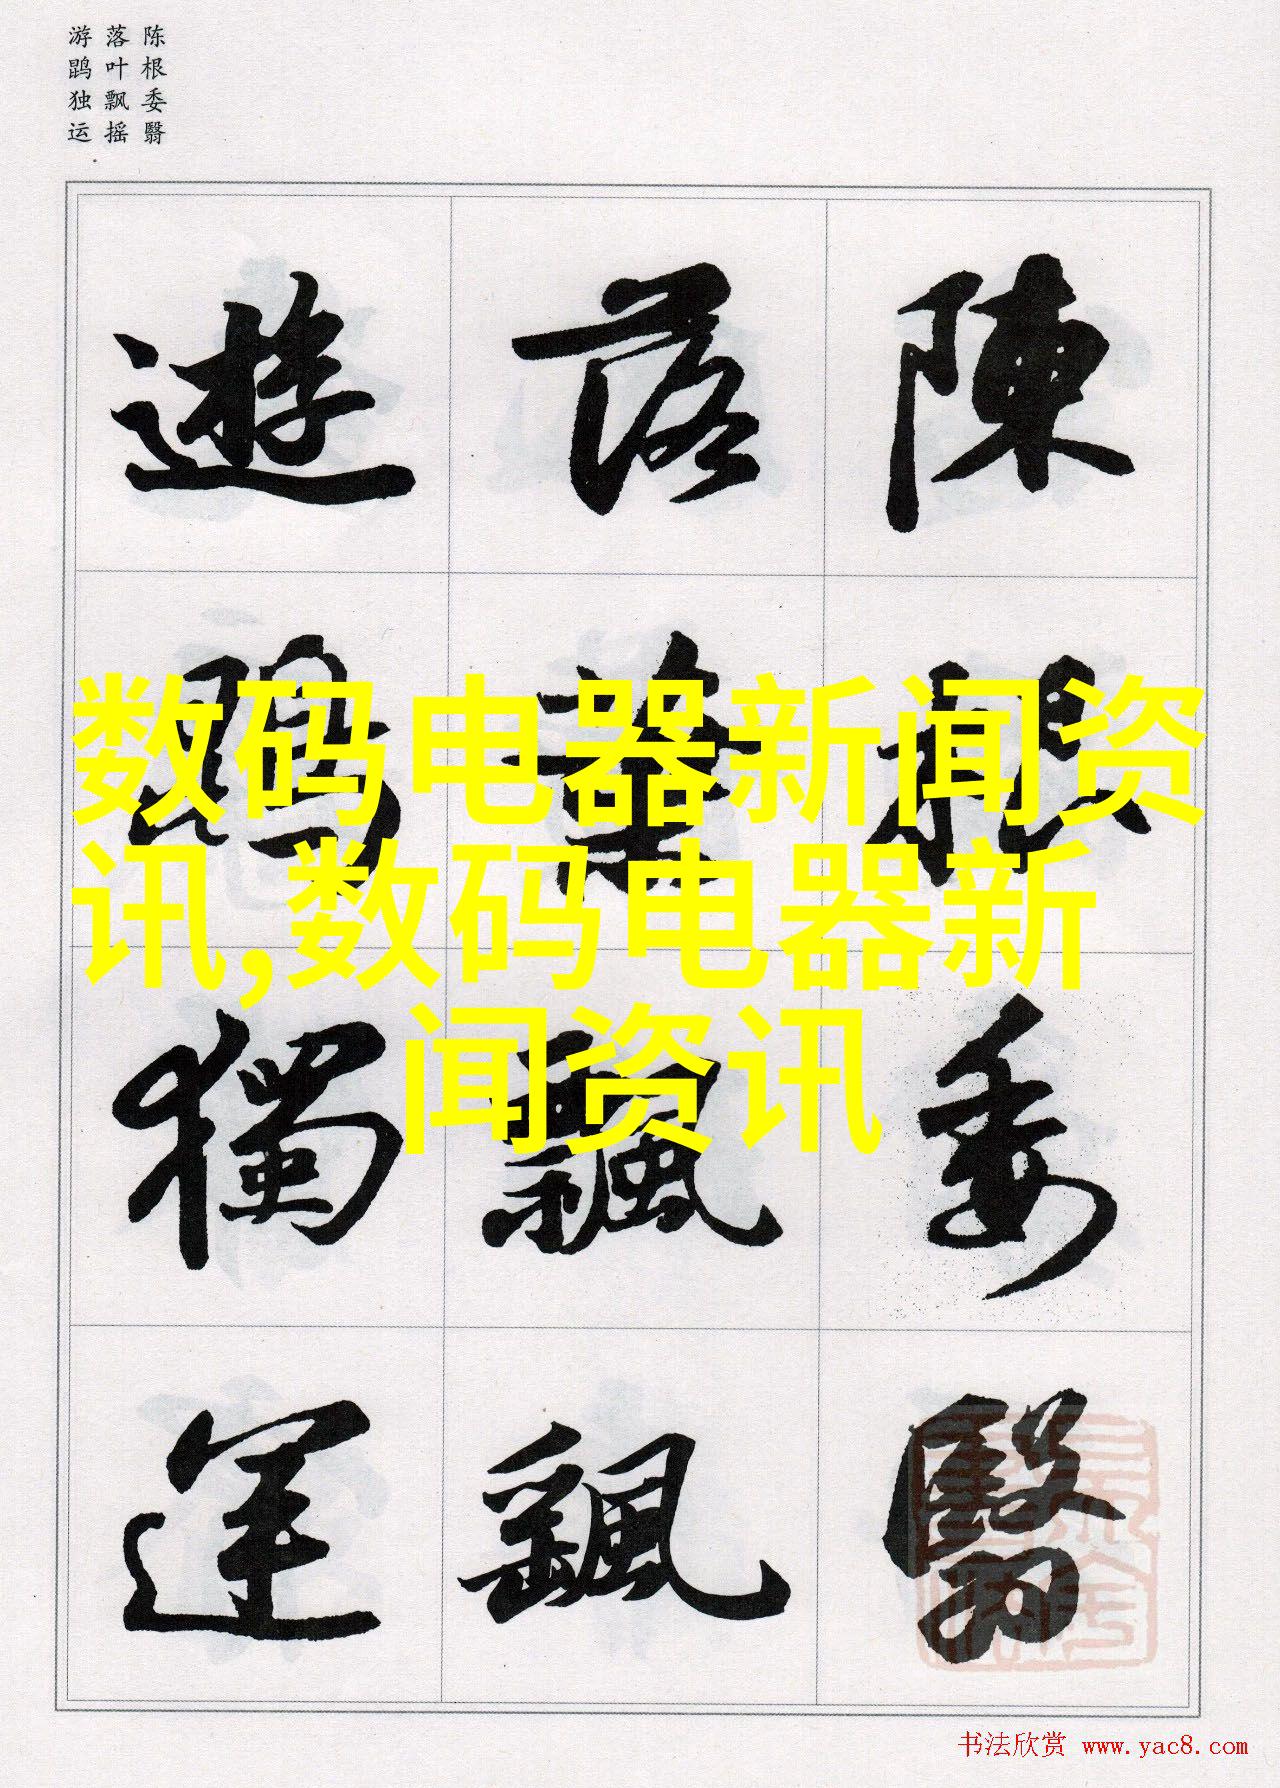 陈根委翳
落叶飘摇
游鹍独运
陳根委翳
落葉飄颻
遊鵾獨運
数码电器新闻资
讯,数码电器新
闻资讯
书法欣赏 www.yac8.com